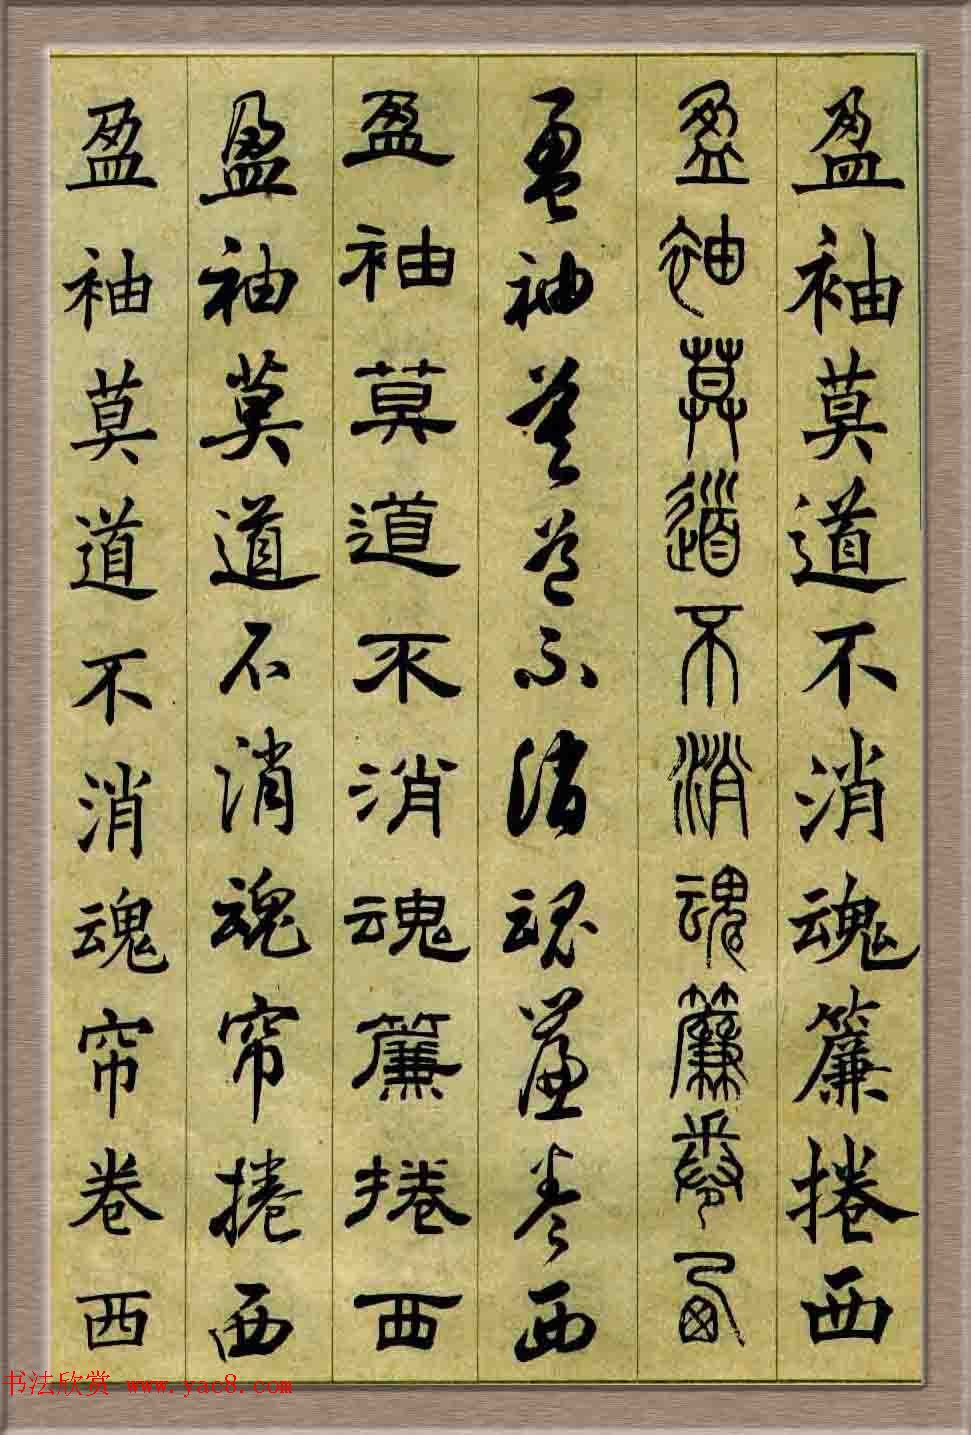 盈袖莫道不消魂簾捲西
盈袖莫道不消魂簾卷西
盈袖莫道不消魂簾卷西
盈袖莫道不消魂簾捲西
盈袖莫道不消魂帘捲西
盈袖莫道不消魂帘卷西
书法欣赏 www.yac8.com